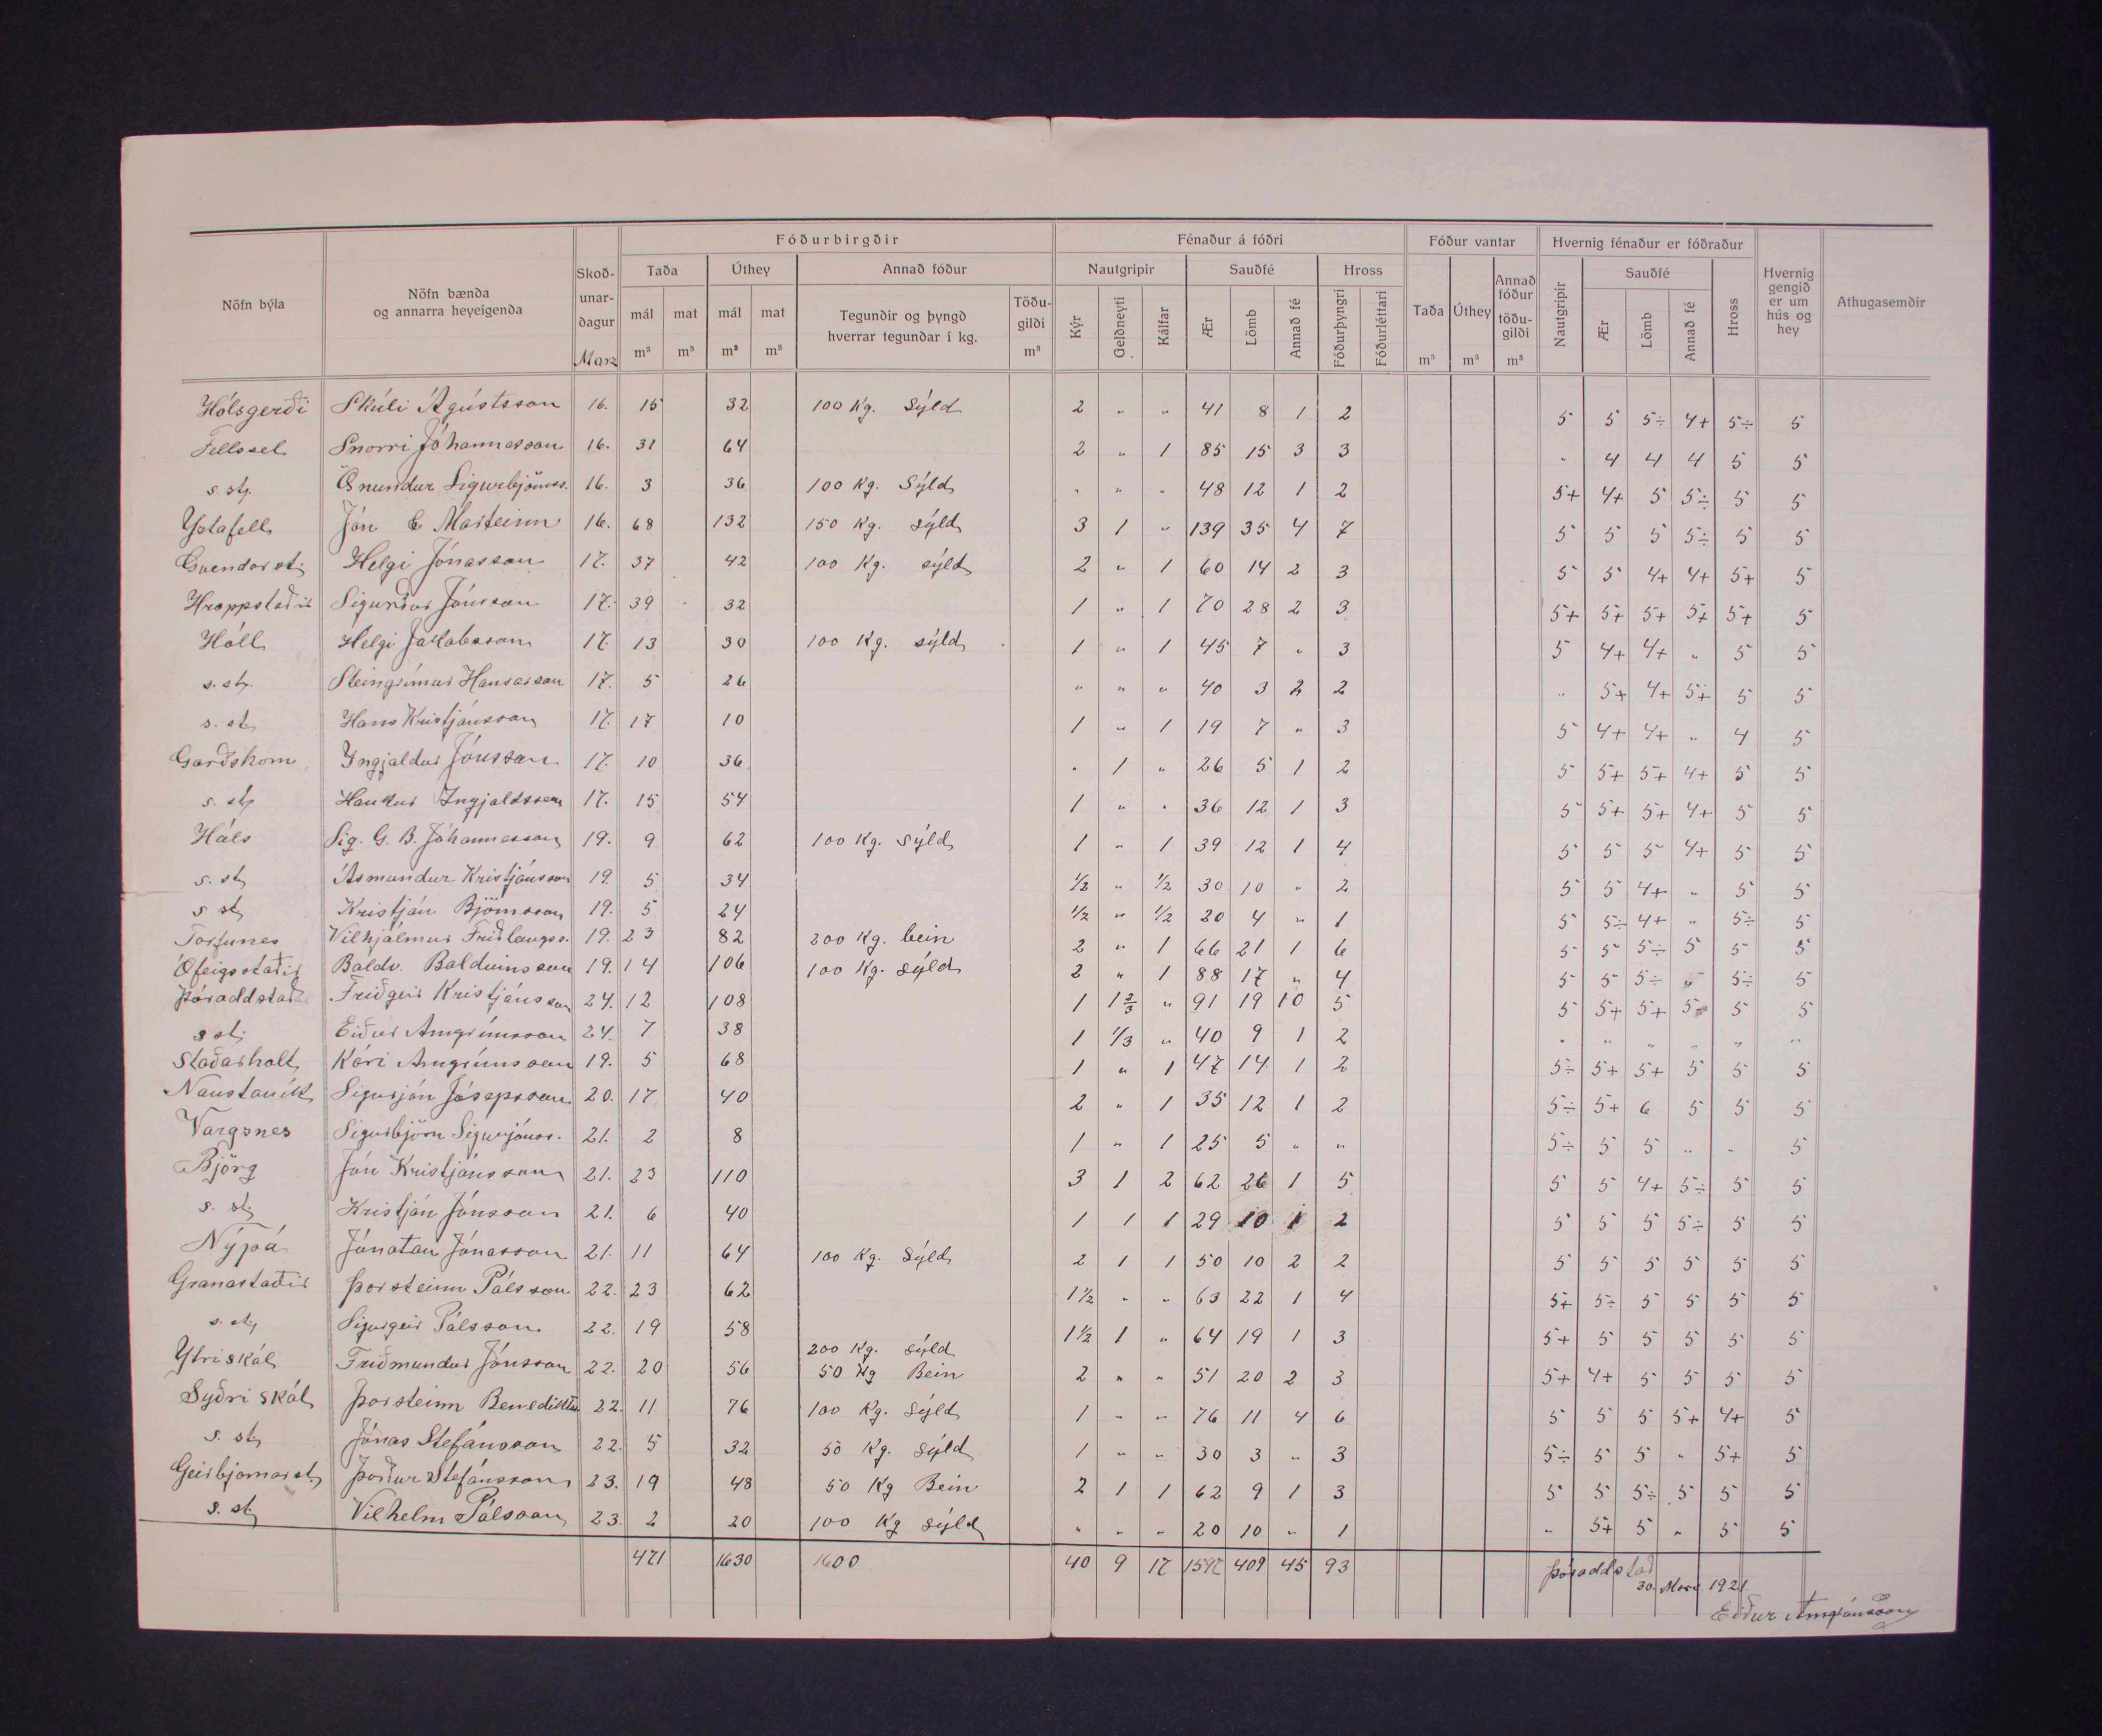 Fóðurbirgðir Fénaður á fóðri Fóður vantar Hvernig fénaður er fóðraður
Nöfn býla Nöfn bænda og annarra heyeigenda Skoðunardagur Marz Taða Úthey Annað fóður Nautgripir Sauðfé Hross Taða Úthey Annað fóður töðugildi Nautgripir Sauðfé Hross Hvernig gengið er um hús og hey Athugasemdir
mál m³ mat m³ mál m³ mat m³ Tegundir og þyngd hverrar tegundar í kg. Töðugildi m³ Kýr Geldneyti Kálfar Ær Lömb Annað fé Fóðurþyngri Fóðurléttari m³ m³ m³ Ær Lömb Annað fé
Hólsgerði Skúli Ágústsson 16. 15 32 100 Kg. Sýld 2 " " 41 8 1 2 5 5 5÷ 4+ 5÷ 5
Fellssel Snorri Jóhannesson 16. 31 64 2 " 1 85 15 3 3 " 4 4 4 5 5
s. st. Ögnundur Sigurbjörnss. 16. 3 36 100 Kg. Sýld " " " 48 12 1 2 5+ 4+ 5 5÷ 5 5
Ystafell Jón & Marteinn 16. 68 132 150 Kg. Sýld 3 1 " 139 35 4 7 5 5 5 5÷ 5 5
Gvendarst. Helgi Jónasson 17. 37 42 100 Kg. sýld 2 " 1 60 14 2 3 5 5 4+ 4+ 5+ 5
Hrappstaðir Sigurður Jónsson 17. 39 32 1 " 1 70 28 2 3 5+ 5+ 5+ 5+ 5+ 5
Hóll Helgi Jakobsson 17. 13 30 100 Kg. sýld 1 " 1 45 7 " 3 5 4+ 4+ " 5 5
s. st. Steingrímur Hansesson 17. 5 26 " " " 40 3 2 2 " 5+ 4+ 5+ 5 5
s. st. Hans Kristjánsson 17. 17 10 1 " 1 19 7 " 3 5 4+ 4+ " 4 5
Garðshorn Ingjaldur Jónsson 17. 10 36 " 1 " 26 5 1 2 5 5+ 5+ 4+ 5 5
s. st. Haukur Ingjaldsson 17. 15 54 1 " " 36 12 1 3 5 5+ 5+ 4+ 5 5
Háls Sig. G. B. Jóhannesson 19. 9 62 100 Kg. Sýld 1 " 1 39 12 1 4 5 5 5 4+ 5 5
s. st. Ásmundur Kristjánsson 19. 5 34 1/2 " 1/2 30 10 " 2 5 5 4+ " 5 5
s st. Kristján Björnsson 19. 5 24 1/2 " 1/2 20 4 " 1 5 5÷ 4+ " 5÷ 5
Torfunes Vilhjálmur Friðlaugss. 19. 23 82 200 Kg. bein 2 " 1 66 21 1 6 5 5 5÷ 5 5 5
Ófeigsstaðir Baldv. Baldvinsson 19. 14 106 100 Kg. sýld 2 " 1 88 17 " 4 5 5 5÷ 5÷ 5
Þóroddstað Friðgeir Kristjánsson 24. 12 108 1 1 2/3 " 91 19 10 5 5 5+ 5+ 5 5 5
s st. Eiður Arngrímsson 24. 7 38 1 1/3 " 40 9 1 2 " " " " " "
Staðarholt Kári Arngrímsson 19. 5 68 1 " 1 47 14 1 2 5÷ 5+ 5+ 5 5 5
Naustavík Sigurjón Jósepsson 20. 17 40 2 " 1 35 12 1 2 5÷ 5+ 6 5 5 5
Vargsnes Sigurbjörn Sigurjónss. 21. 2 8 1 " 1 25 5 " " 5÷ 5 5 " " 5
Björg Jón Kristjánsson 21. 23 110 3 1 2 62 26 1 5 5 5 4+ 5÷ 5 5
s. st. Kristján Jónsson 21. 6 40 1 1 1 29 10 1 2 5 5 5 5÷ 5 5
Nýpá Jónatan Jónasson 21. 11 64 100 Kg. Sýld 2 1 1 50 10 2 2 5 5 5 5 5 5
Granastaðir Þorsteinn Pálsson 22. 23 62 1 1/2 " " 63 22 1 4 5+ 5÷ 5 5 5 5
s. st. Sigurgeir Pálsson 22. 19 58 1 1/2 1 " 64 19 1 3 5+ 5 5 5 5 5
200 Kg. sýld
Ytriskál Friðmundur Jónsson 22. 20 56 50 Kg Bein 2 " " 51 20 2 3 5+ 4+ 5 5 5 5
Syðri skál Þorsteinn Benediktss 22. 11 76 100 Kg. Sýld 1 " " 76 11 4 6 5 5 5 5+ 4+ 5
s. st. Jónas Stefánsson 22. 5 32 50 Kg. sýld 1 " " 30 3 " 3 5÷ 5 5 " 5+ 5
Geirbjarnarst. Þórður Stefánsson 23. 19 48 50 Kg Bein 2 1 1 62 9 1 3 5 5 5÷ 5 5 5
s. st. Vilhelm Pálsson 23. 2 20 100 Kg sýld " " " 20 10 " 1 " 5+ 5 " 5 5
471 1630 1600 40 9 17 1597 409 45 93
Þóroddstað
30. Mars 1921
Eiður Arngrímsson